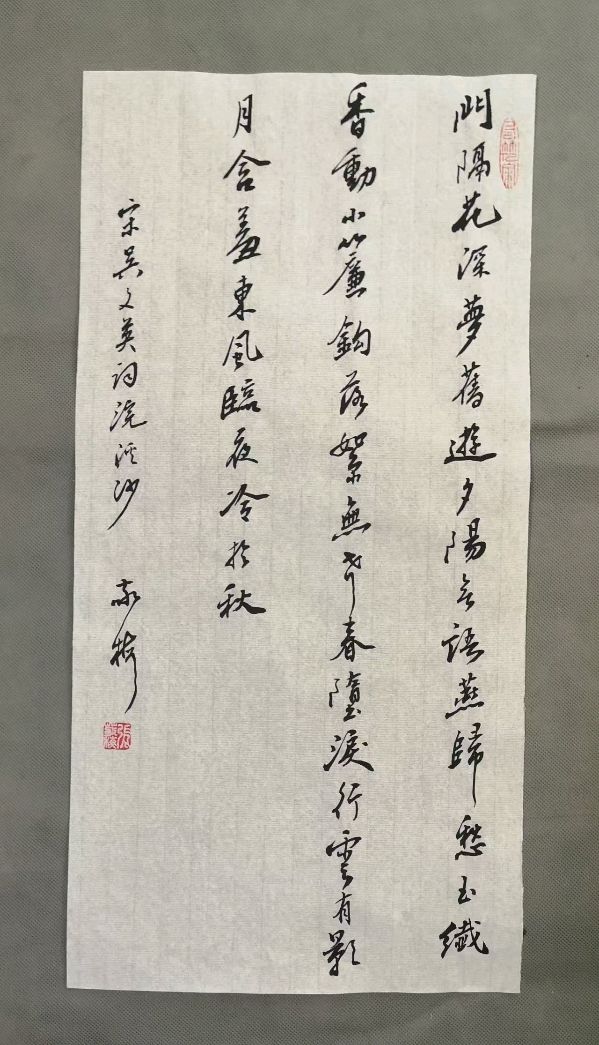 門隔花深夢舊遊夕陽無語燕歸愁玉纖
香動小簾鉤落絮無聲春墮淚行雲有影
月含羞東風臨夜冷於秋
宋吳文英詞浣溪沙